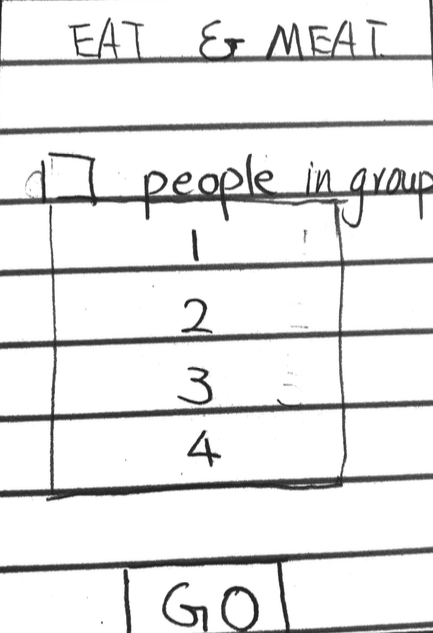 EAT & MEAT
people in group
1
2
3
4
GO